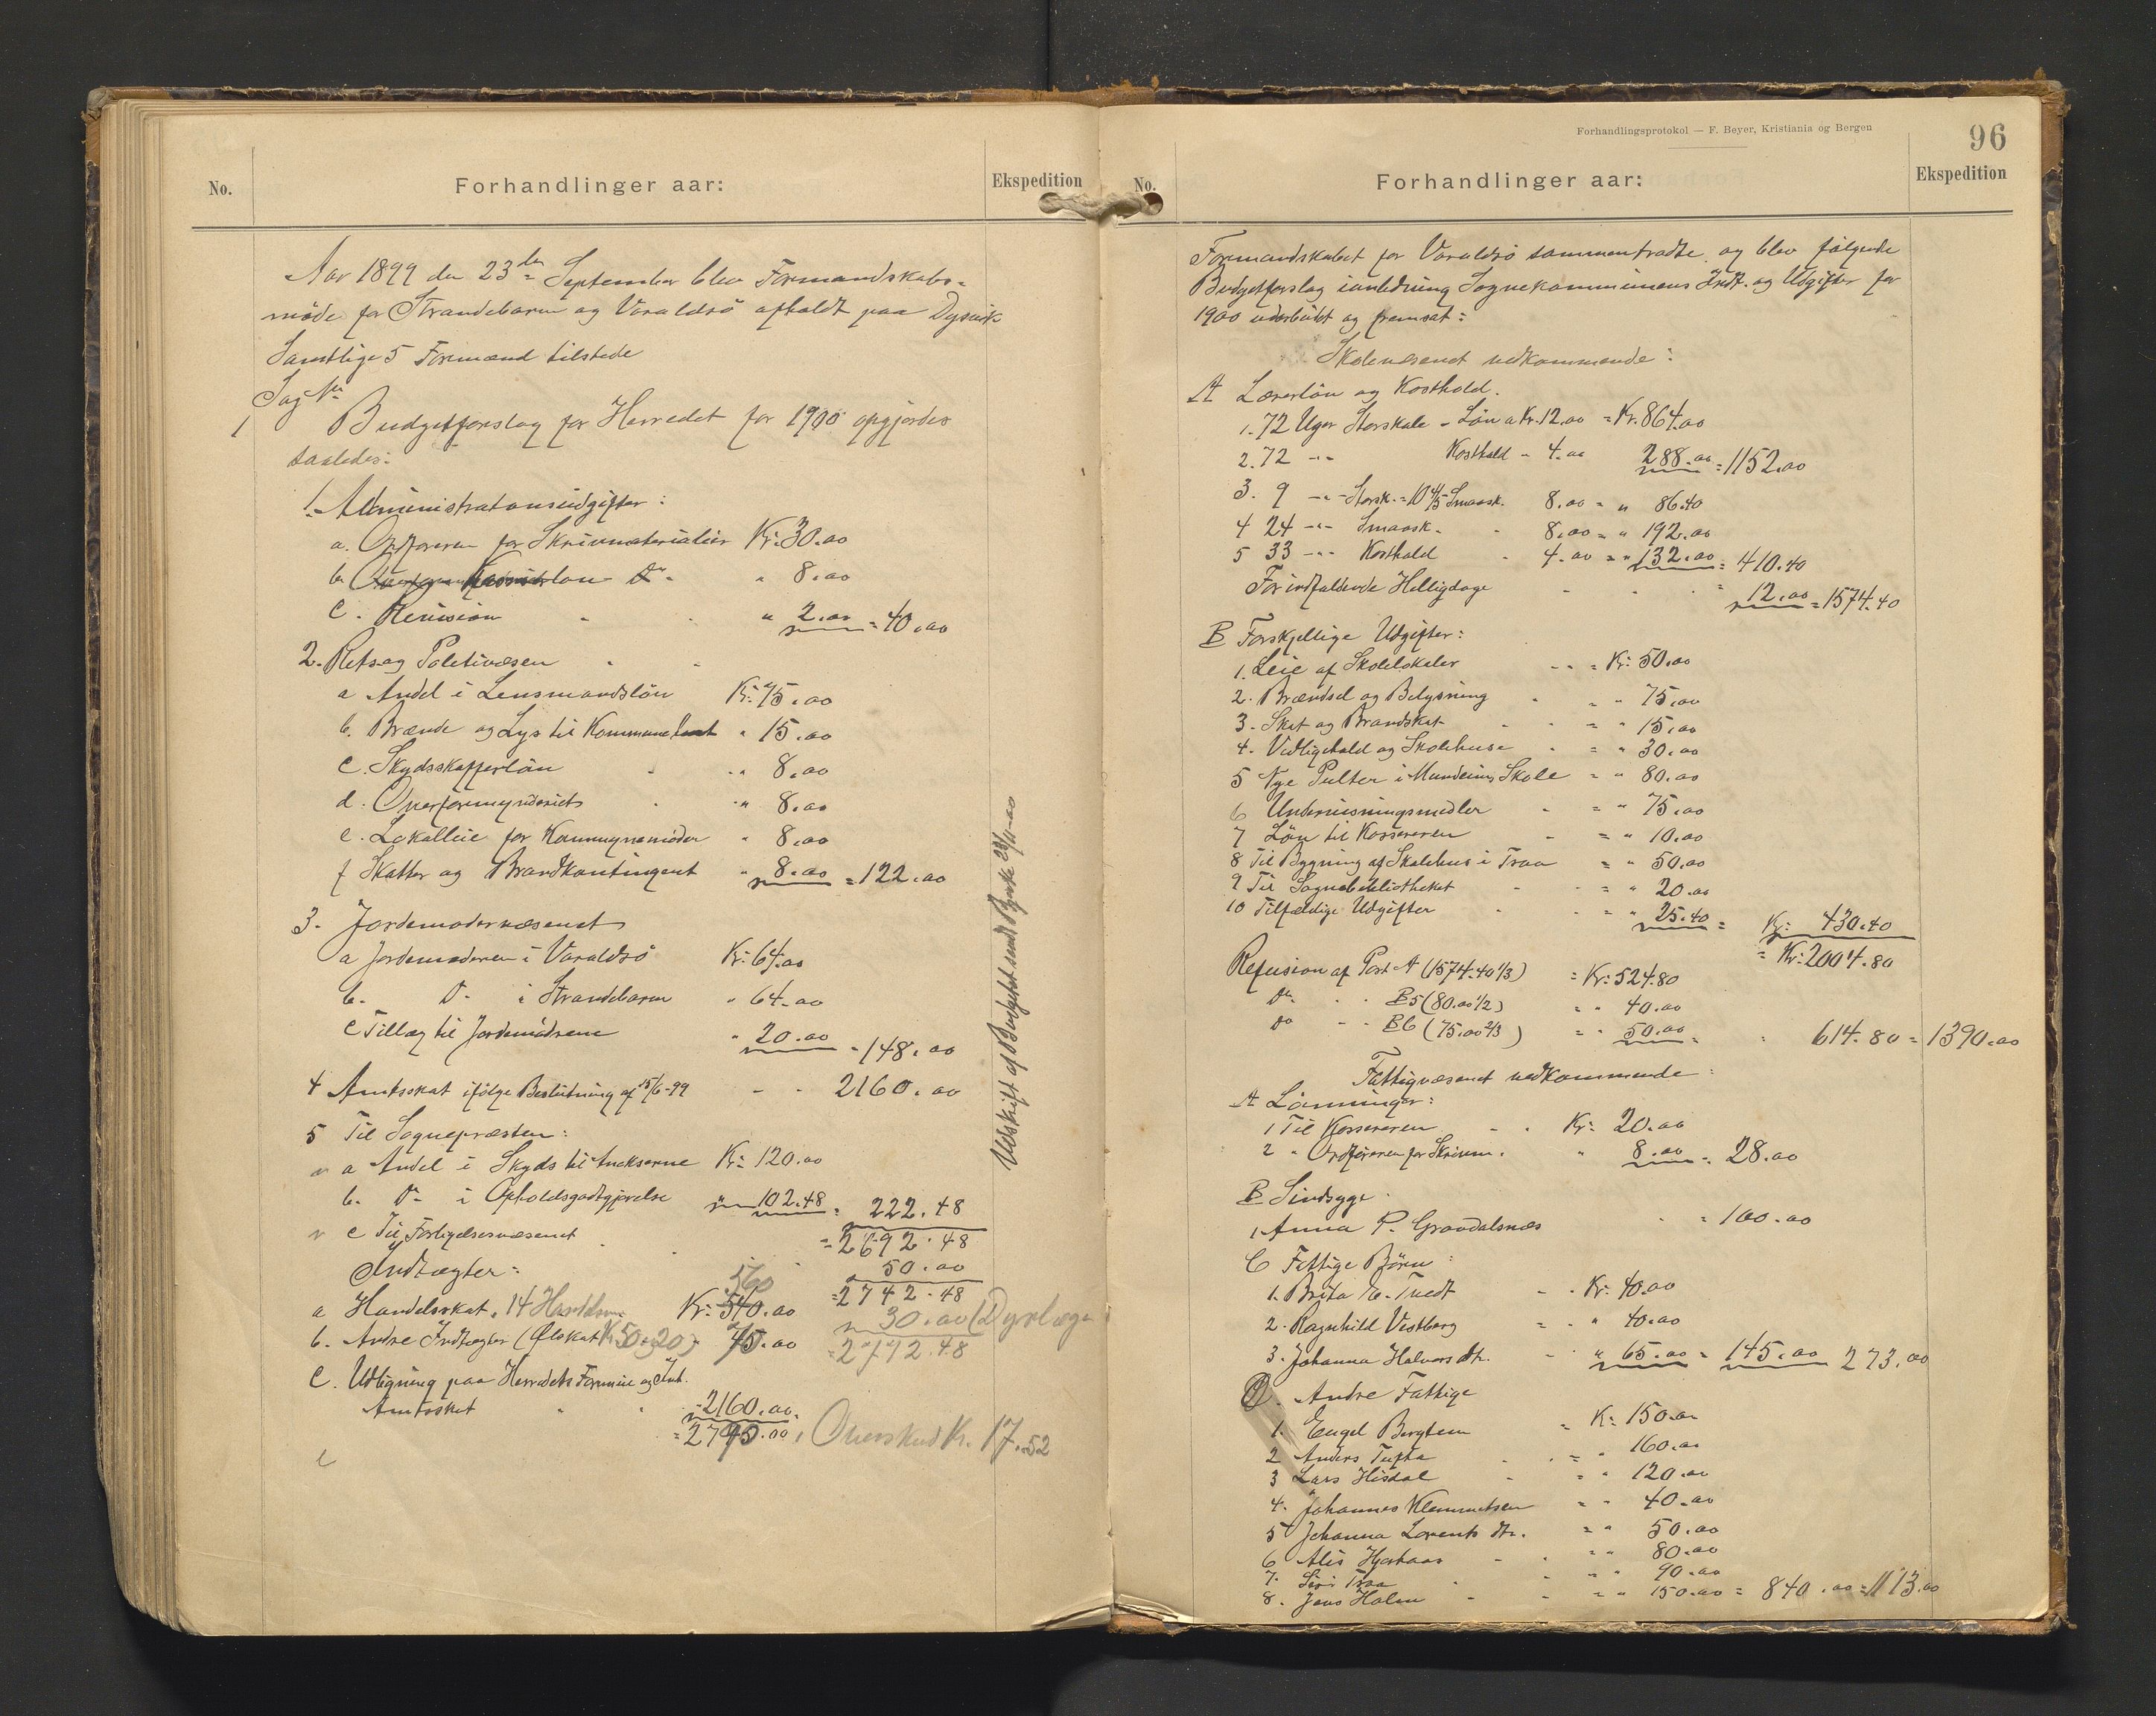 No.
Forhandlinger aar:
Ekspedition
Aar 1899 den 23de September blev Formandskabs-
møde for Strandebarm og Varaldsø afholdt paa Dysvik
Samtlige 5 Formænd tilstede
Sag No
1 Budgetforslag for Herredet for 1900 opgjordes
saaledes:
1. Administrationsudgifter:
a. Ordføreren for Skrivmaterialier Kr. 30.00
b. " 8.00
c. Revision " 2.00 = 40.00
2. Rets og Politivæsen
a Andel i Lensmandsløn Kr: 75.00
b. Brænde og Lys til " 15.00
c. Skydsskafferløn " 8.00
d. Overformynderiet " 8.00
e. Lokalleie for Kommunemøder " 8.00
f Skatter og Brandkontingent " 8.00 = 122.00
3. Jordemodervæsenet
a Jordemoderen i Varaldsø Kr: 64.00
b. Do i Strandebarm " 64.00
c Tillæg til Jordemødrene " 20.00 = 148.00
4 Amtsskat ifølge Beslutning af 15/6-99 2160.00
5 Til Sognepræsten:
a Andel i Skyds til Anekserne Kr: 120.00
b. Do i Opholdsgodtgjørelse 102.48 = 222.48
c Til Forligelsesvæsenet = 2692.48
Indtægter: 50.00
560 = 2742.48
a Handelsskat. 14 Kr: 540.00 30.00 (Dyrlæge
b. Andre Indtægter (Ølskat Kr 50 + 20) 75.00 = 2772.48
c. Udligning paa Herredets Formue og Indt.
Amtsskat = 2160.00
= 2795.00, Overskud Kr. 17.52
Udskrift af Budgettet sendt 23/11-00
Forhandlingsprotokol — F. Beyer, Kristiania og Bergen
96
No.
Forhandlinger aar:
Ekspedition
Formandskabet for Varaldsø sammentraadte og blev følgende
Budgetforslag ianledning Sognekommunens Indt. og Udgifter for
1900 udarbeidet og fremsat:
Skolevæsenet vedkommende:
A Lærerløn og Kosthold.
1. 72 Uger Storskole - Løn a Kr. 12.00 = Kr. 864.00
2. 72 -"- Kosthold - 4.00 288.00 = 1152.00
3. 9 -"- Storsk. = 10 4/5 Smaask. 8.00 = " 86.40
4 24 -"- Smaask. 8.00 = " 192.00
5 33 -"- Kosthold 4.00 = " 132.00 = 410.40
For indfaldende Helligdage = 12.00 = 1574.40
B Forskjellige Udgifter:
1. Leie af Skolelokaler = Kr: 50.00
2. Brændsel og Belysning " 75.00
3. Skat og Brandskat = " 15.00
4. Vedligehold og Skolehuse = " 30.00
5 Nye Pulter i Mundeims Skole = " 80.00
6 Undervisningsmidler = " 75.00
7 Løn til Kassereren = " 10.00
8 Til Bygning af Skolehus i Traa = " 50.00
9 Til Sognebibliotheket = " 20.00
10 Tilfældige Udgifter = " 25.40 = Kr: 430.40
= Kr: 2004.80
Refusion af Post A (1574.40 1/3) = Kr: 524.80
Do B5 (80.00 1/2) " 40.00
Do B6 (75.00 2/3) = " 50.00 = 614.80 = 1390.00
Fattigvæsenet vedkommende:
A Lønninger:
1 Til Kassereren Kr: 20.00
2 " Ordføreren for Skrivm. " 8.00 = 28.00
B Sindsyge
1. Anna P. Gravdalsnæs = 100.00
C Fattige Børn:
1. Brita E. Tvedt Kr: 40.00
2. Ragnhild Vestberg = " 40.00
3. Johanna Halvorsdtr. " 65.00 = 145.00 273.00
D. Andre Fattige
1. Engel Berghem = K: 150.00
2 Anders Tufta = " 160.00
3 Lars Hisdal = " 120.00
4. Johannes Klemmetsen = " 40.00
5 Johanna Lorents dtr. = " 50.00
6 Alis = " 80.00
7. Siri Traa = " 90.00
8. Jens Holm = " 150.00 = 840.00 = 1113.00